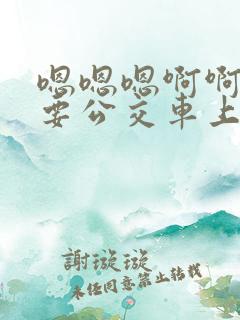 嗯嗯嗯啊啊
要公交車上
謝璇璇
未经同意禁止转载